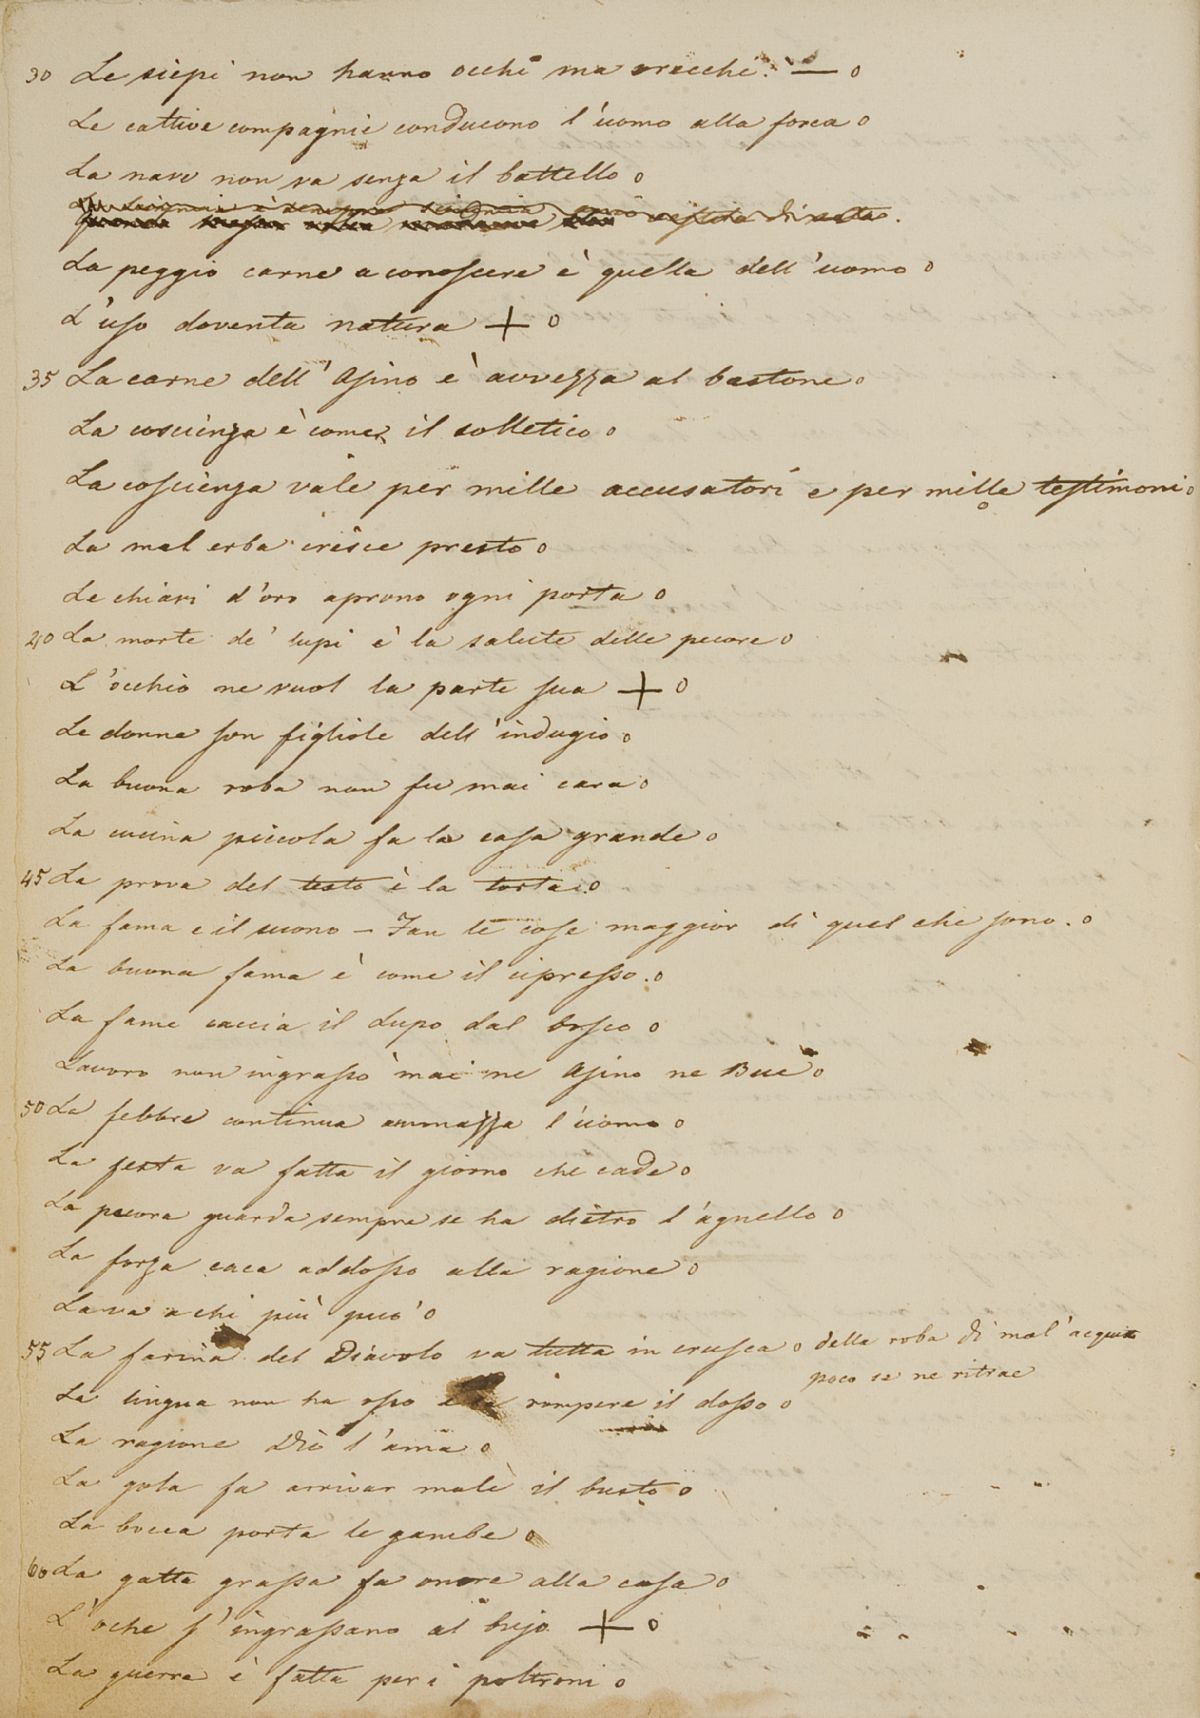 30 Le siepi non hanno occhi ma orecchi. — o
Le cattive compagnie conducono l'uomo alla forca o
La nave non va senza il battello o
vestita di seta.
La peggio carne a conoscere è quella dell'uomo o
L'uso doventa natura + o
35 La carne dell'Asino è avvezza al bastone o
La coscienza è come il solletico o
La coscienza vale per mille accusatori e per mille testimoni o
o
La mal erba cresce presto o
Le chiavi d'oro aprono ogni porta o
40 La morte de' lupi è la salute delle pecore o
L'occhio ne vuol la parte sua + o
Le donne son figliole dell'indugio o
La buona roba non fu mai cara o
La cucina piccola fa la casa grande o
45 La prova del testo è la torta. o
La fama e il suono – Fan le cose maggior di quel che sono. o
La buona fama è come il cipresso. o
La fame caccia il Lupo dal bosco o
Lavoro non ingrassò mai ne Asino ne Bue o
50 La febbre continua ammazza l'uomo o
La festa va fatta il giorno che cade o
La pecora guarda sempre se ha dietro l'agnello o
La forza caca addosso alla ragione o
La va a chi più può o
55 La farina del Diavolo va tutta in crusca o della roba di mal'acquisto
poco se ne ritrae
La lingua non ha osso e fa rompere il dosso o
La ragione Dio l'ama o
La gola fa arrivar male il busto o
La bocca porta le gambe o
60 La gatta grassa fa onore alla casa o
L'oche s'ingrassano al bujo + o
La guerra è fatta per i poltroni o